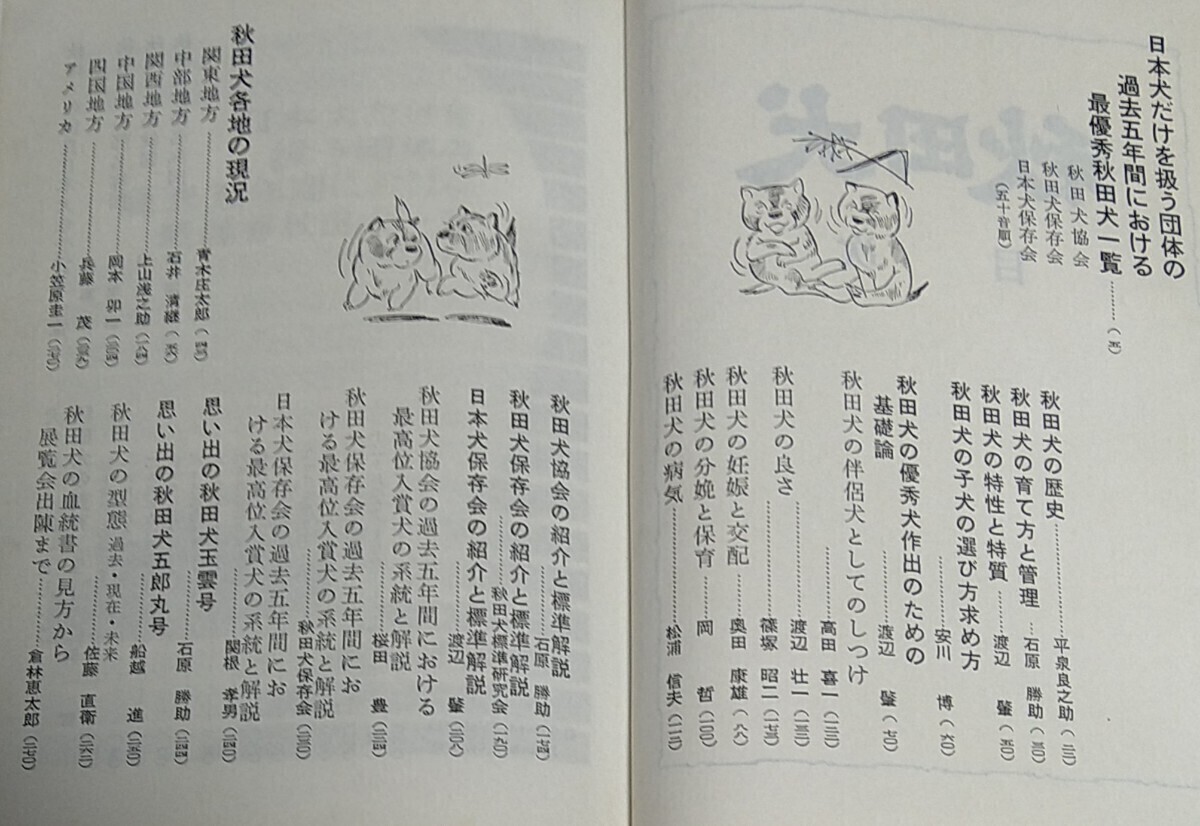 日本犬だけを扱う団体の
過去五年間における
最優秀秋田犬一覧………（五）
秋田犬協会
秋田犬保存会
日本犬保存会
（五十音順）
秋田犬の歴史………平泉良之助
秋田犬の育て方と管理………石原 勝助（三〇）
秋田犬の特性と特質………渡辺 肇（五〇）
秋田犬の子犬の選び方求め方………安川 博（六〇）
秋田犬の優秀犬作出のための
基礎論………渡辺 肇（七〇）
秋田犬の伴侶犬としてのしつけ………高田 喜一
渡辺 壮一
秋田犬の良さ………篠塚 昭二
秋田犬の妊娠と交配………奥田 康雄（八八）
秋田犬の分娩と保育………岡 哲（一〇〇）
秋田犬の病気………松浦 信夫（一一二）
秋田犬各地の現況
関東地方………青木庄太郎（四八）
中部地方………石井 清継（五八）
関西地方………上山浅之助
中国地方………岡本 卯一
四国地方………兵藤 茂
アメリカ………小笠原圭一
秋田犬協会の紹介と標準解説………石原 勝助（一七四）
秋田犬保存会の紹介と標準解説………秋田犬標準研究会（一九〇）
日本犬保存会の紹介と標準解説………渡辺 肇（二〇八）
秋田犬協会の過去五年間における
最高位入賞犬の系統と解説………桜田 豊
秋田犬保存会の過去五年間にお
ける最高位入賞犬の系統と解説………秋田犬保存会
日本犬保存会の過去五年間にお
ける最高位入賞犬の系統と解説………関根 孝男
思い出の秋田犬玉雲号………石原 勝助
思い出の秋田犬五郎丸号………船越 進
秋田犬の型態 過去・現在・未来………佐藤 直衛
秋田犬の血統書の見方から
展覧会出陳まで………倉林恵太郎（二七〇）